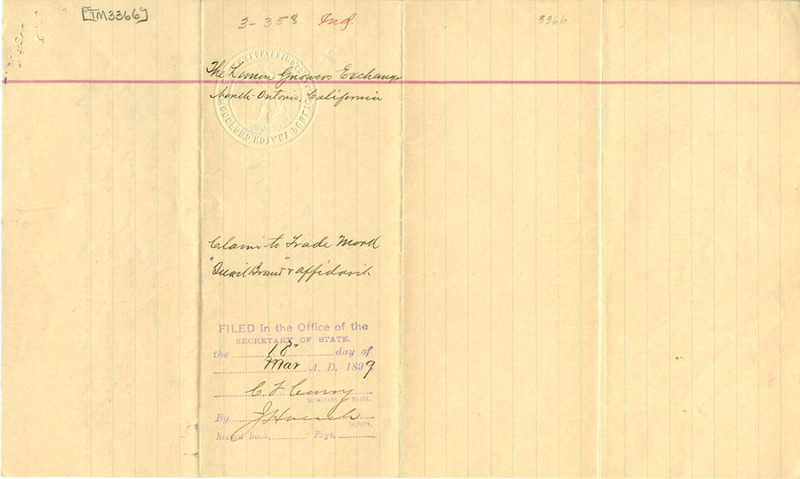 [TM3366]
3-358 Ind.
3366
The Lemon Growers Exchange
North-Ontario, California
Claim to Trade Mark
"Quail Brand" & affidavit
FILED in the Office of the
SECRETARY OF STATE.
the 18" day of
Mar A. D. 1899
C F Curry
SECRETARY OF STATE.
By J Hoesch
DEPUTY.
Record Book, Page,